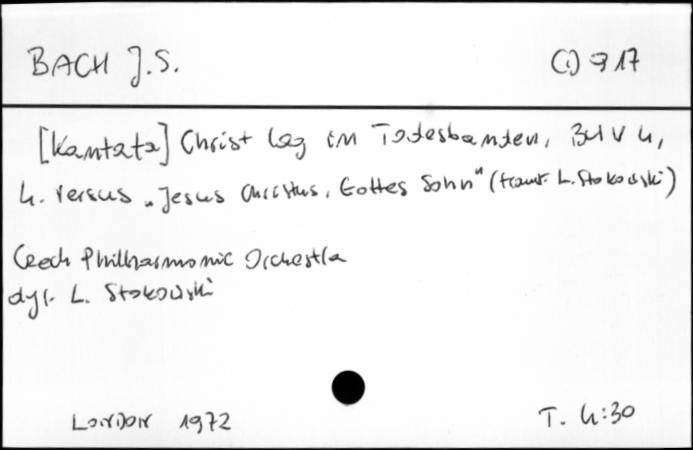 BACH J.S.
C) 917
[Kantata] Christ lag im Todesbanden, BWV 4,
4. versus „Jesus Christus, Gottes Sohn" (trans. L. Stokowski)
Czech Philharmonic Orchestra
dyr. L. Stokowski
LONDON 1972
T. 4:30